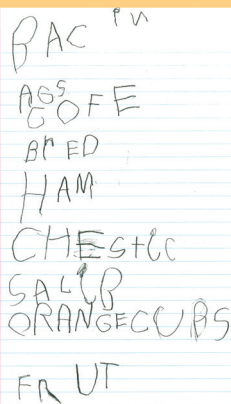 BACIN
AGS
COFE
BrED
HAM
CHEStic
SALIB
ORANGECUPS
FRUT